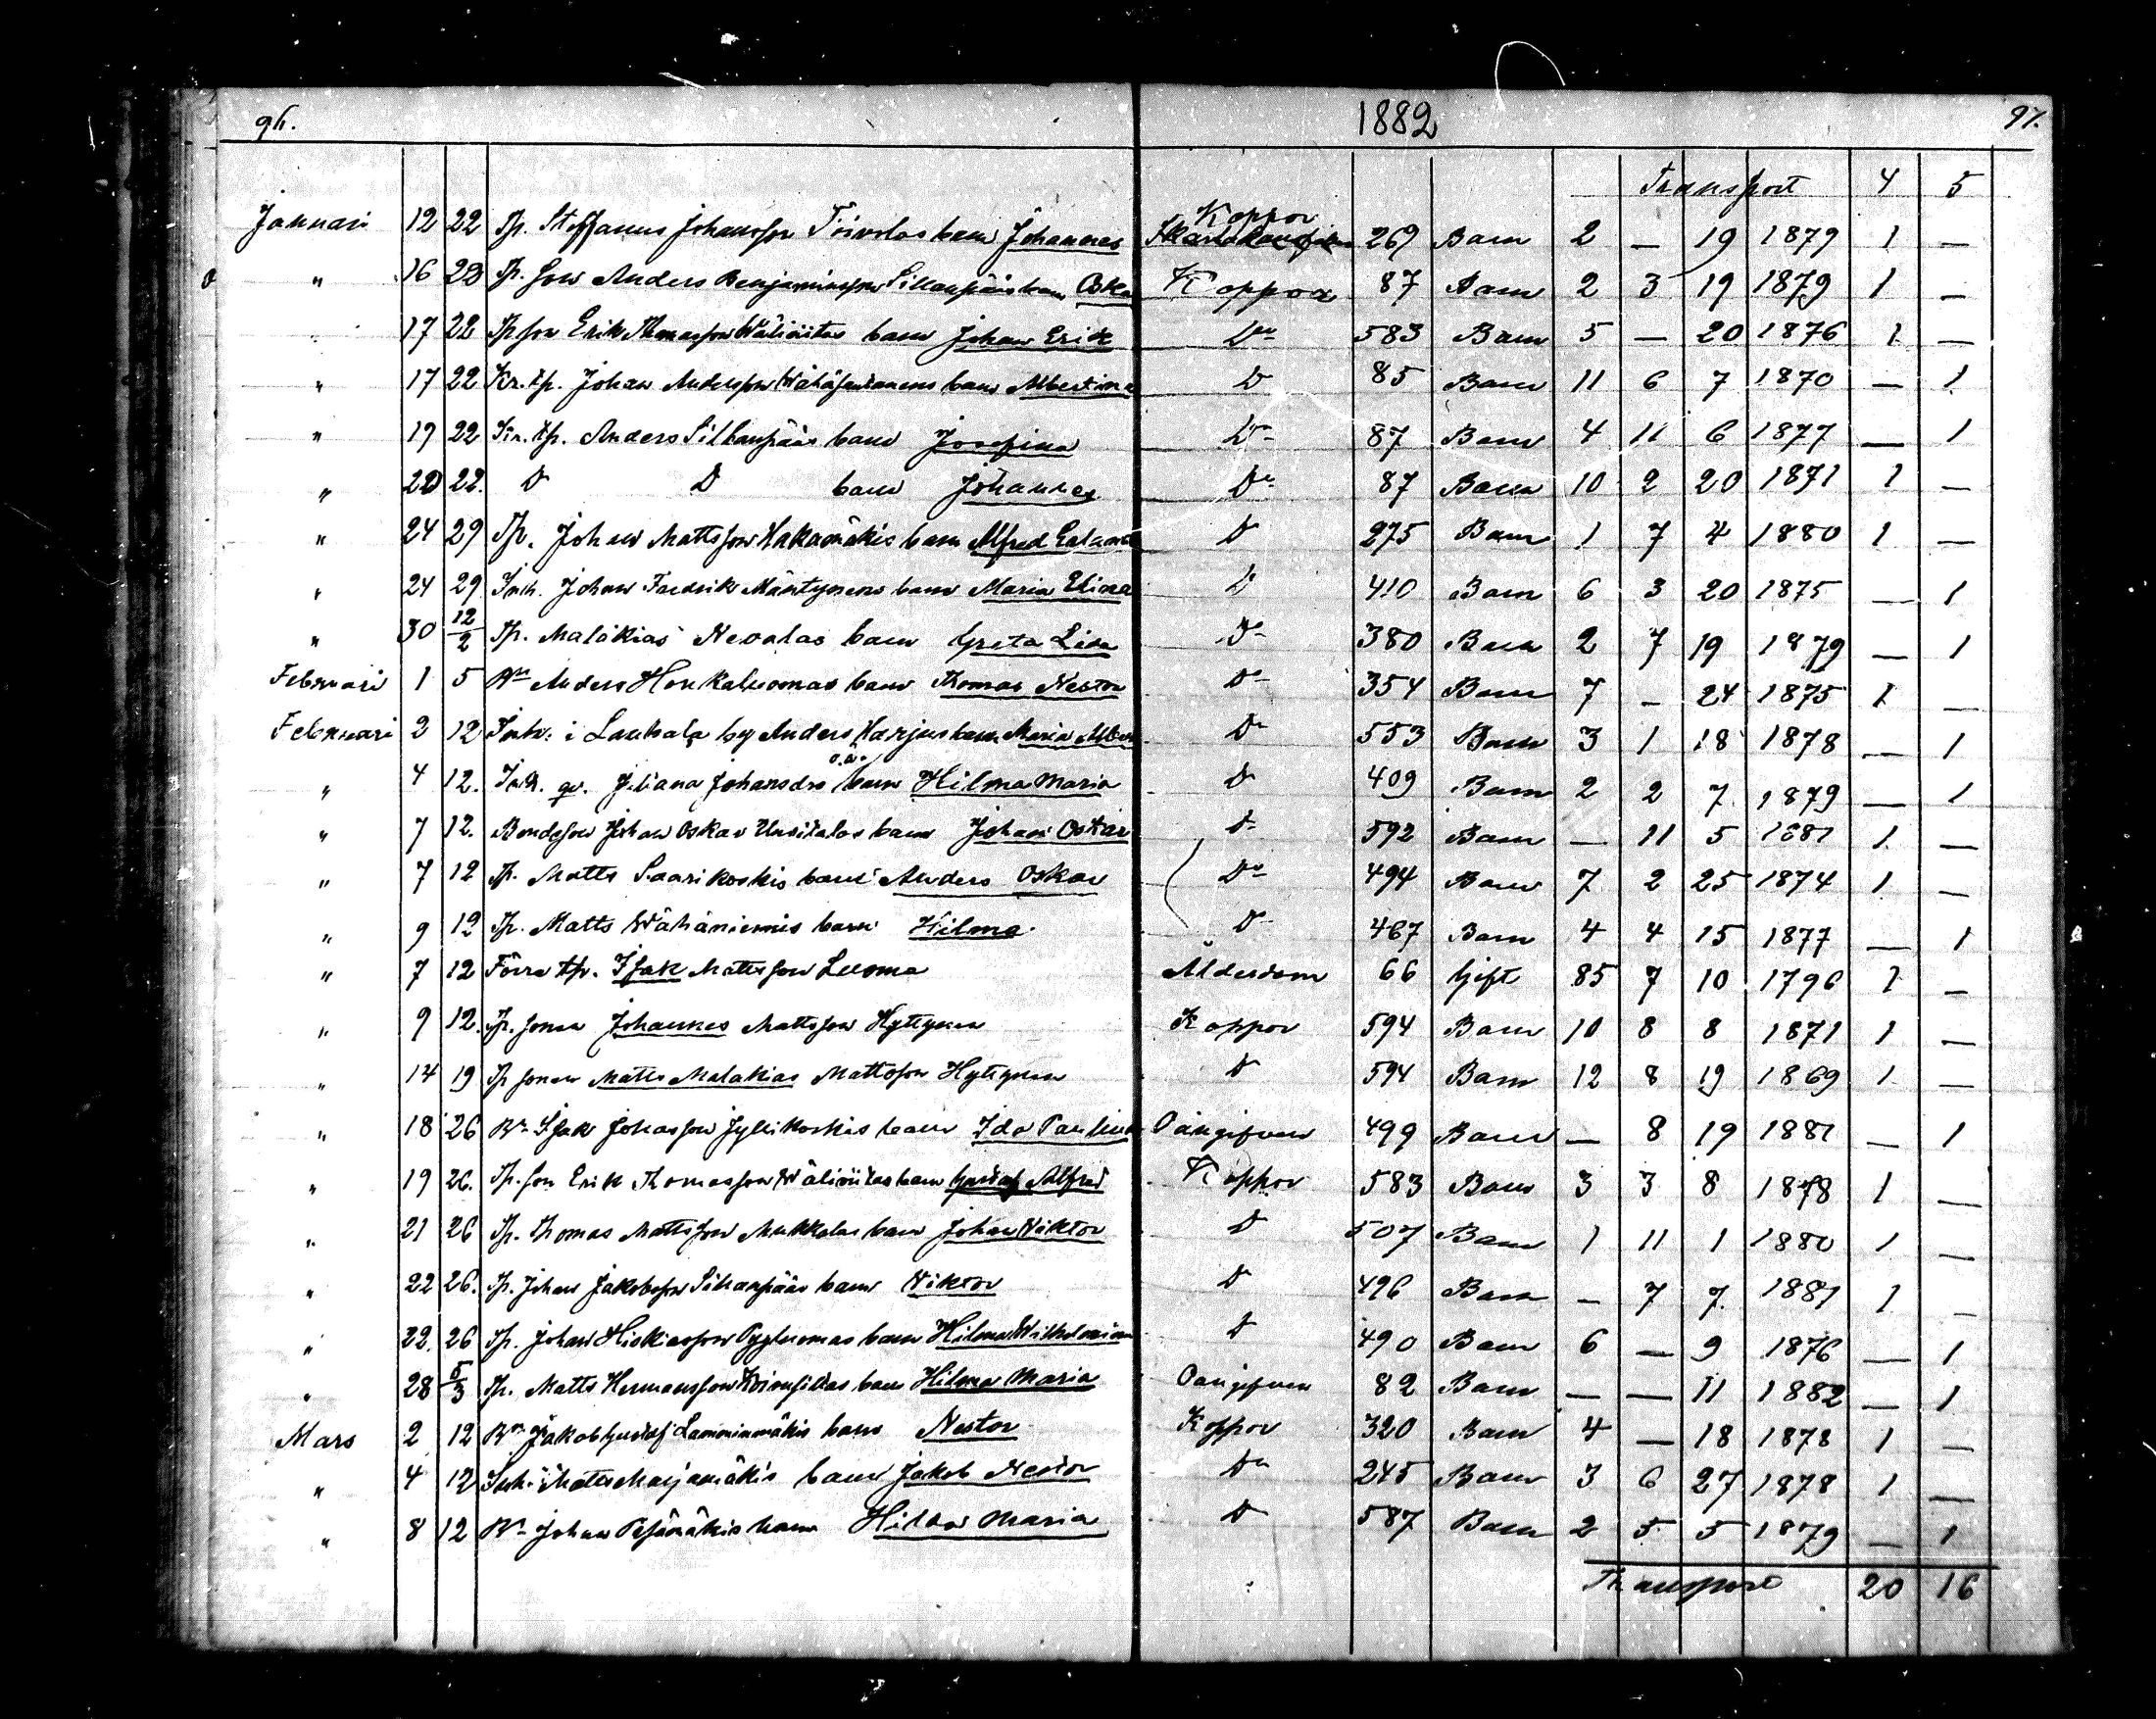 96. 1882 97.
Transport 4 5
Januari 12 22 Tp. Steffanus Johansson Toivolas barn Johannes Koppor 269 Barn 2 — 19 1879 1 —
" 16 23 Tp. son Anders Benjaminsson Sillanpääs barn Oska Koppor 87 Barn 2 3 19 1879 1 —
17 22 Tp son Erik Thomasson Wäliviitas barn Johan Erik Do 583 Barn 5 — 20 1876 1 —
" 17 22 Kr. tp. Johan Andersson barn Albertina D 85 Barn 11 6 7 1870 — 1
" 19 22 Kr. tp. Anders Sillanpääs barn Josefina Do 87 Barn 4 11 6 1877 — 1
" 20 22. D D barn Johannes Do 87 Barn 10 2 20 1871 1 —
" 24 29 Tp. Johan Mattsson Hakamäkis barn Alfred D 275 Barn 1 7 4 1880 1 —
" 24 29 Inh. Johan Fredrik Mäntynens barn Maria Elina D 410 Barn 6 3 20 1875 — 1
" 30 12/2 Tp. Malakias Nevalas barn Greta Lisa Do 380 Barn 2 7 19 1879 — 1
Februari 1 5 Bn Anders Honkaluomas barn Thomas Nestor Do 354 Barn 7 — 24 1875 1 —
Februari 2 12 Inh. i Laukala by Anders Harjus barn Maria Do 553 Barn 3 1 18 1878 — 1
" 4 12. Inh. qv. Juliana Johansdrs o.ä. barn Hilma Maria D 409 Barn 2 2 7 1879 — 1
" 7 12. Bondeson Johan Oskar Uusitalos barn Johan Oskar D 592 Barn — 11 5 1881 1 —
" 7 12 Tp. Matts Saarikoskis barn Anders Oskar Do 494 Barn 7 2 25 1874 1 —
" 9 12 Tp. Matts Wähäniemis barn Hilma D 467 Barn 4 4 15 1877 — 1
" 7 12 Förra tp. Isak Mattsson Luoma Ålderdom 66 Gift 85 7 10 1796 1 —
" 9 12. Tp. sonen Johannes Mattsson Hytinen Koppor 594 Barn 10 8 8 1871 1 —
" 14 19 Tp sonen Matts Malakias Mattsson Hytinen D 594 Barn 12 8 19 1869 1 —
" 18 26 Bn Isak Johansson Jyllikoskis barn Ida Paulina Oangifven 499 Barn — 8 19 1881 — 1
" 19 26. Tp. son Erik Thomasson Wäliviitas barn Gustaf Alfred Koppor 583 Barn 3 3 8 1878 1 —
" 21 26 Tp. Thomas Mattsson Mukkalas barn Johan Wiktor D 507 Barn 1 11 1 1880 1 —
" 22 26. Tp. Johan Jakobsson Sillanpääs barn Wiktor D 496 Barn — 7 7 1881 1 —
" 22. 26 Tp. Johan Hiskiasson Pyyluomas barn Hilma Wilhelmina D 490 Barn 6 — 9 1876 — 1
" 28 5/3 Tp. Matts Hermansson barn Hilma Maria Oangifven 82 Barn — — 11 1882 — 1
Mars 2 12 Bn Jakob Gustaf Lamminmäkis barn Nestor Koppor 320 Barn 4 — 18 1878 1 —
" 4 12 Inh. Matts Marjamäkis barn Jakob Nestor Do 245 Barn 3 6 27 1878 1 —
" 8 12 Bn Johan Pesämäkis barn Hilda Maria D 587 Barn 2 5 5 1879 — 1
Transport 20 16